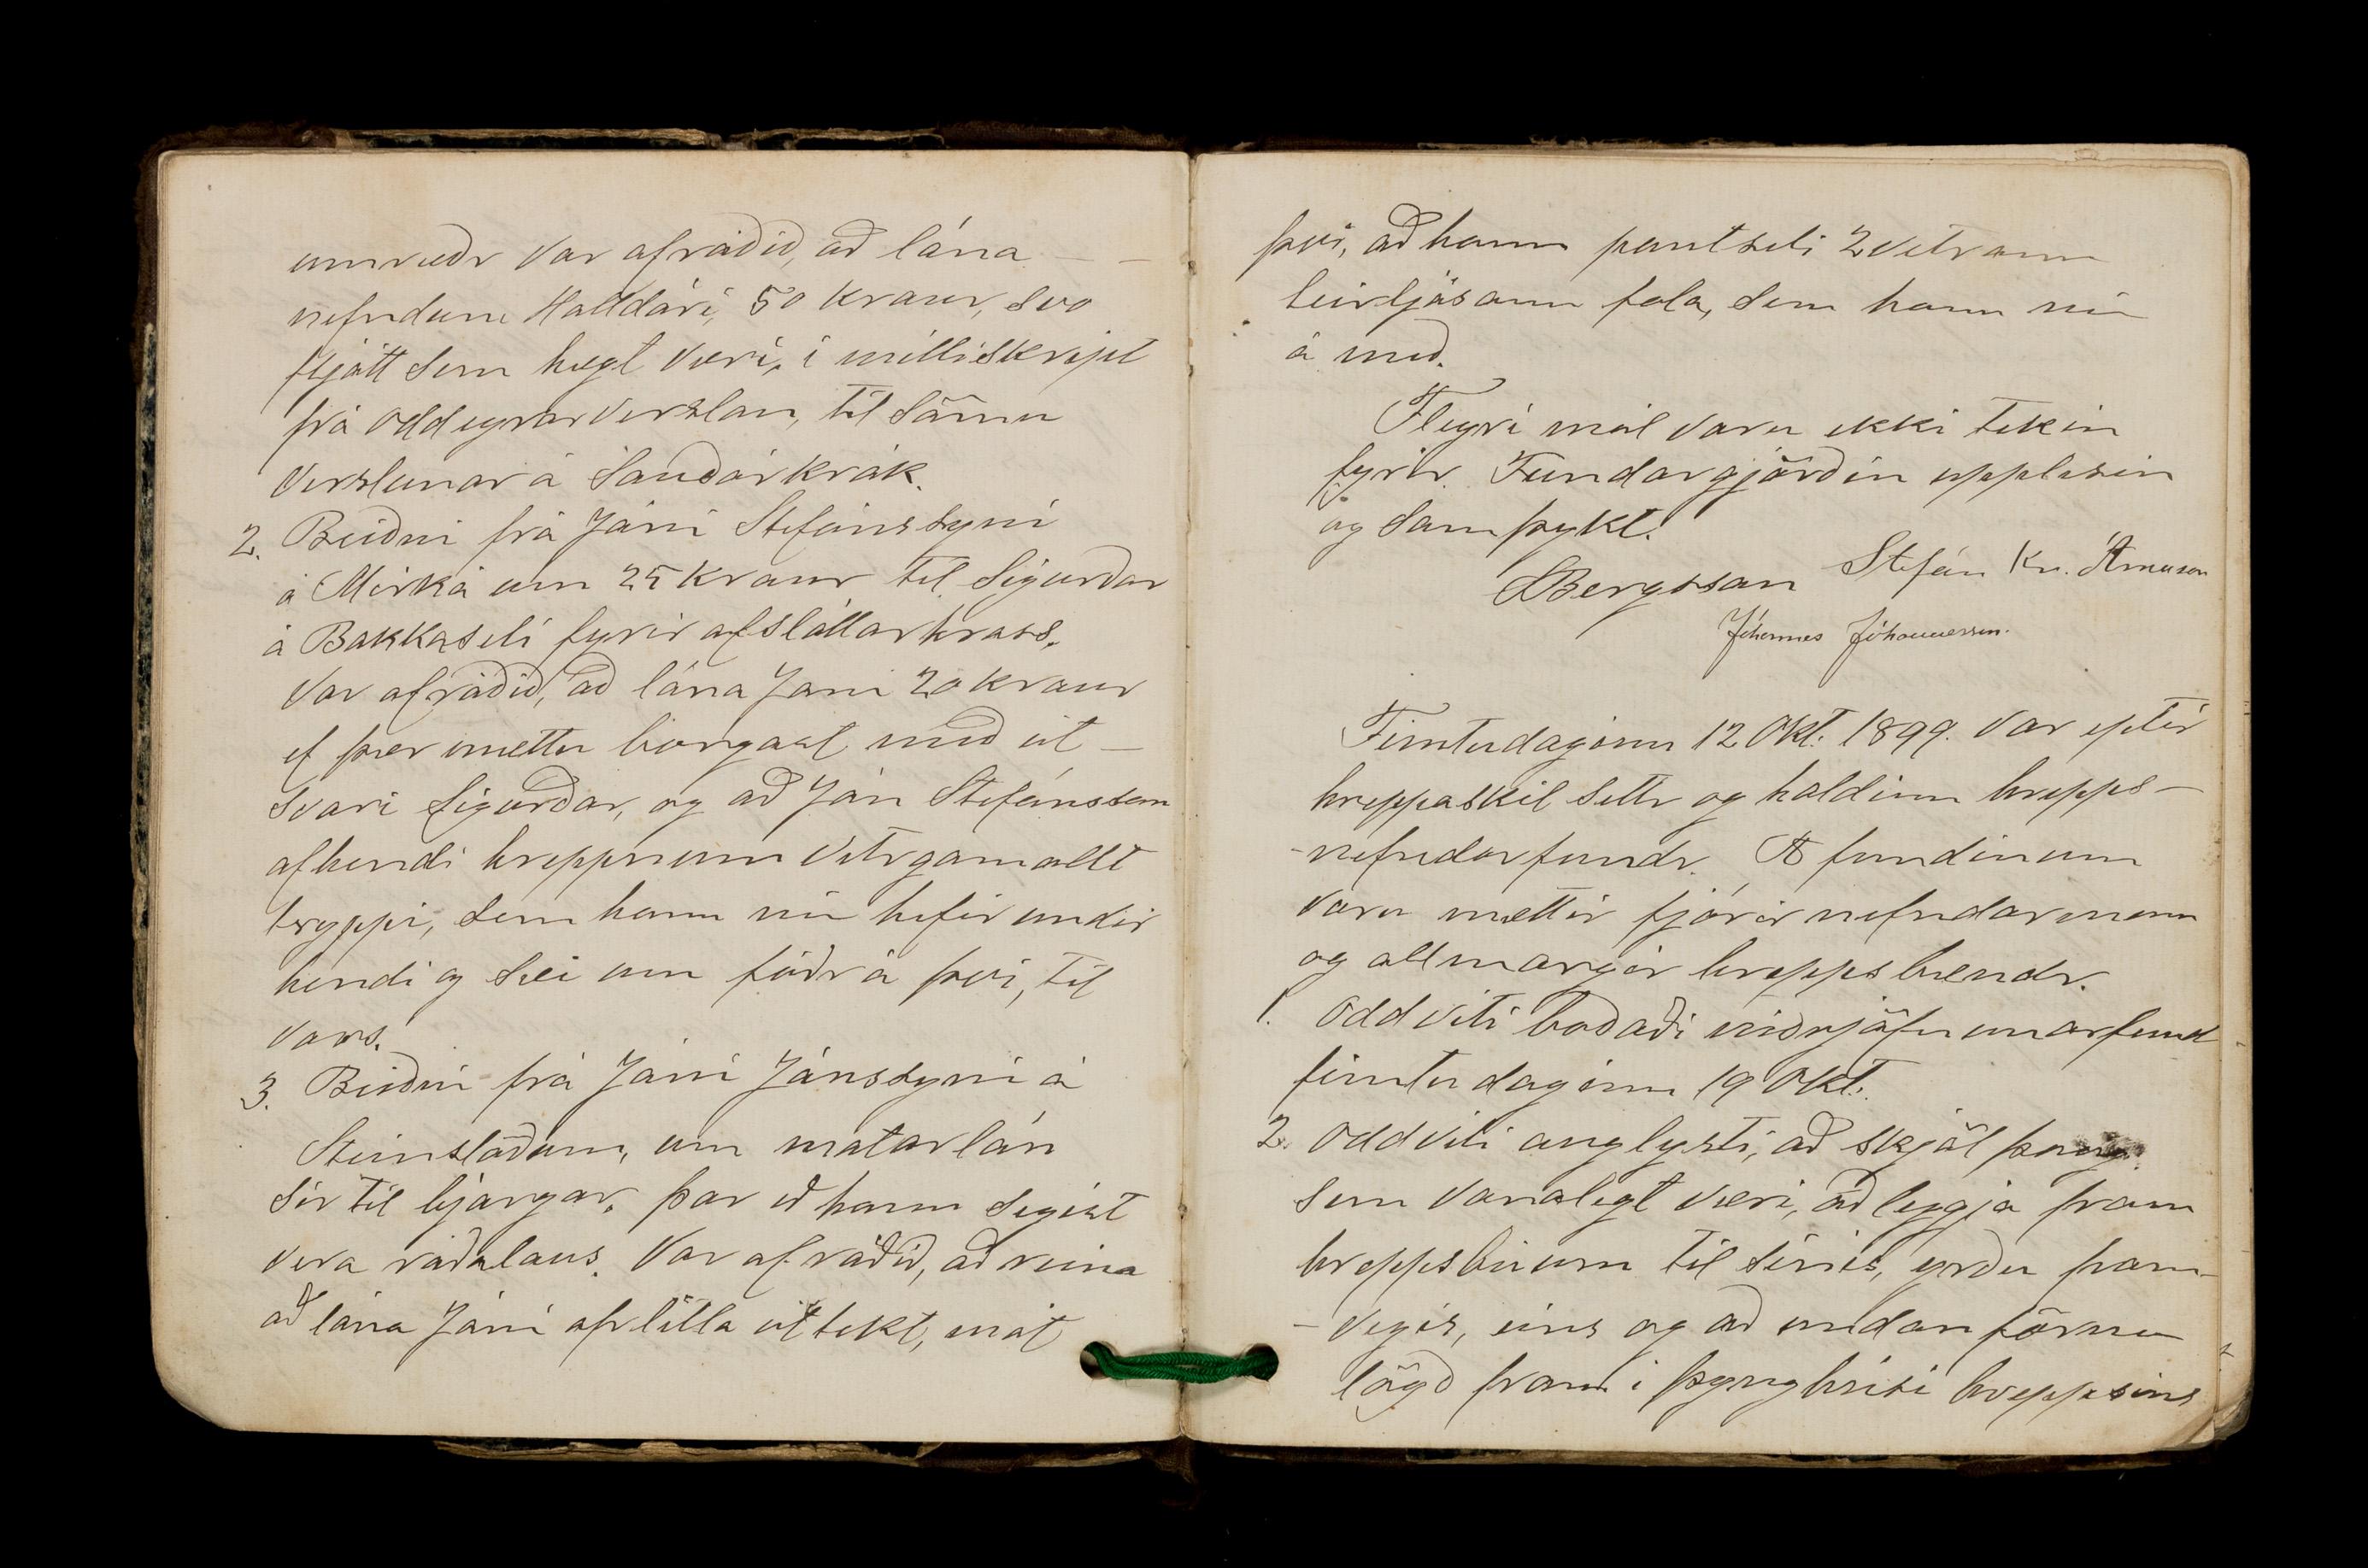 umræðr var afráðið, að lána – –
nefndum Halldóri, 50 kronur, svo
fljótt sem hægt væri, í milliskript
frá Oddeyrarverslan, til sömu
verslunar á Sauðárkrók.
2. Beiðni frá Jóni Stefánssyni
á Mirká um 25 kronur til Sigurðar
á Bakkaseli fyrir afsláttarhross.
Var afráðið, að lána Jóni 20 kronur
ef þær mættu borgast með út –
svari Sigurðar, og að Jón Stefánsson
afhendi hreppnum vetrgamallt
tryppi, sem hann nú hefir undir
hendi og sei um fóðr á því, til
vors.
3. Beiðni frá Jóni Jónssyni á
Steinstöðum, um matarlán
sér til bjargar, þar eð hann segist
vera ráðalaus. Var afráðið, að reina
að lána Jóni ofrlitla úttekt, mót
því, að hann pantseti 2 vetrann
leirljósann fola, sem hann nú
á með.
Fleyri mál voru ekki tekin
fyrir. Fundargjörðin upplesin
og samþykt.
SBergsson Stefán Kr. Árnason
Jóhannes Jóhannesson.
Fimtudaginn 12 Okt: 1899. var eptir
hreppaskil settr og haldinn hrepps –
- nefndarfundr. Á fundinum
voru mættir fjórir nefndarmenn
og allmargir hreppsbændr.
1. Oddviti boðaði niðrjöfnunarfund
fimtudaginn 19 Okt:.
2. Oddviti auglysti, að skjöl þaug
sem vanalegt væri, að leggja fram
hreppsbúum til sínis, yrðu fram-
- vegis, eins og að undan förnu
lögð fram í þynghúsi hreppsins